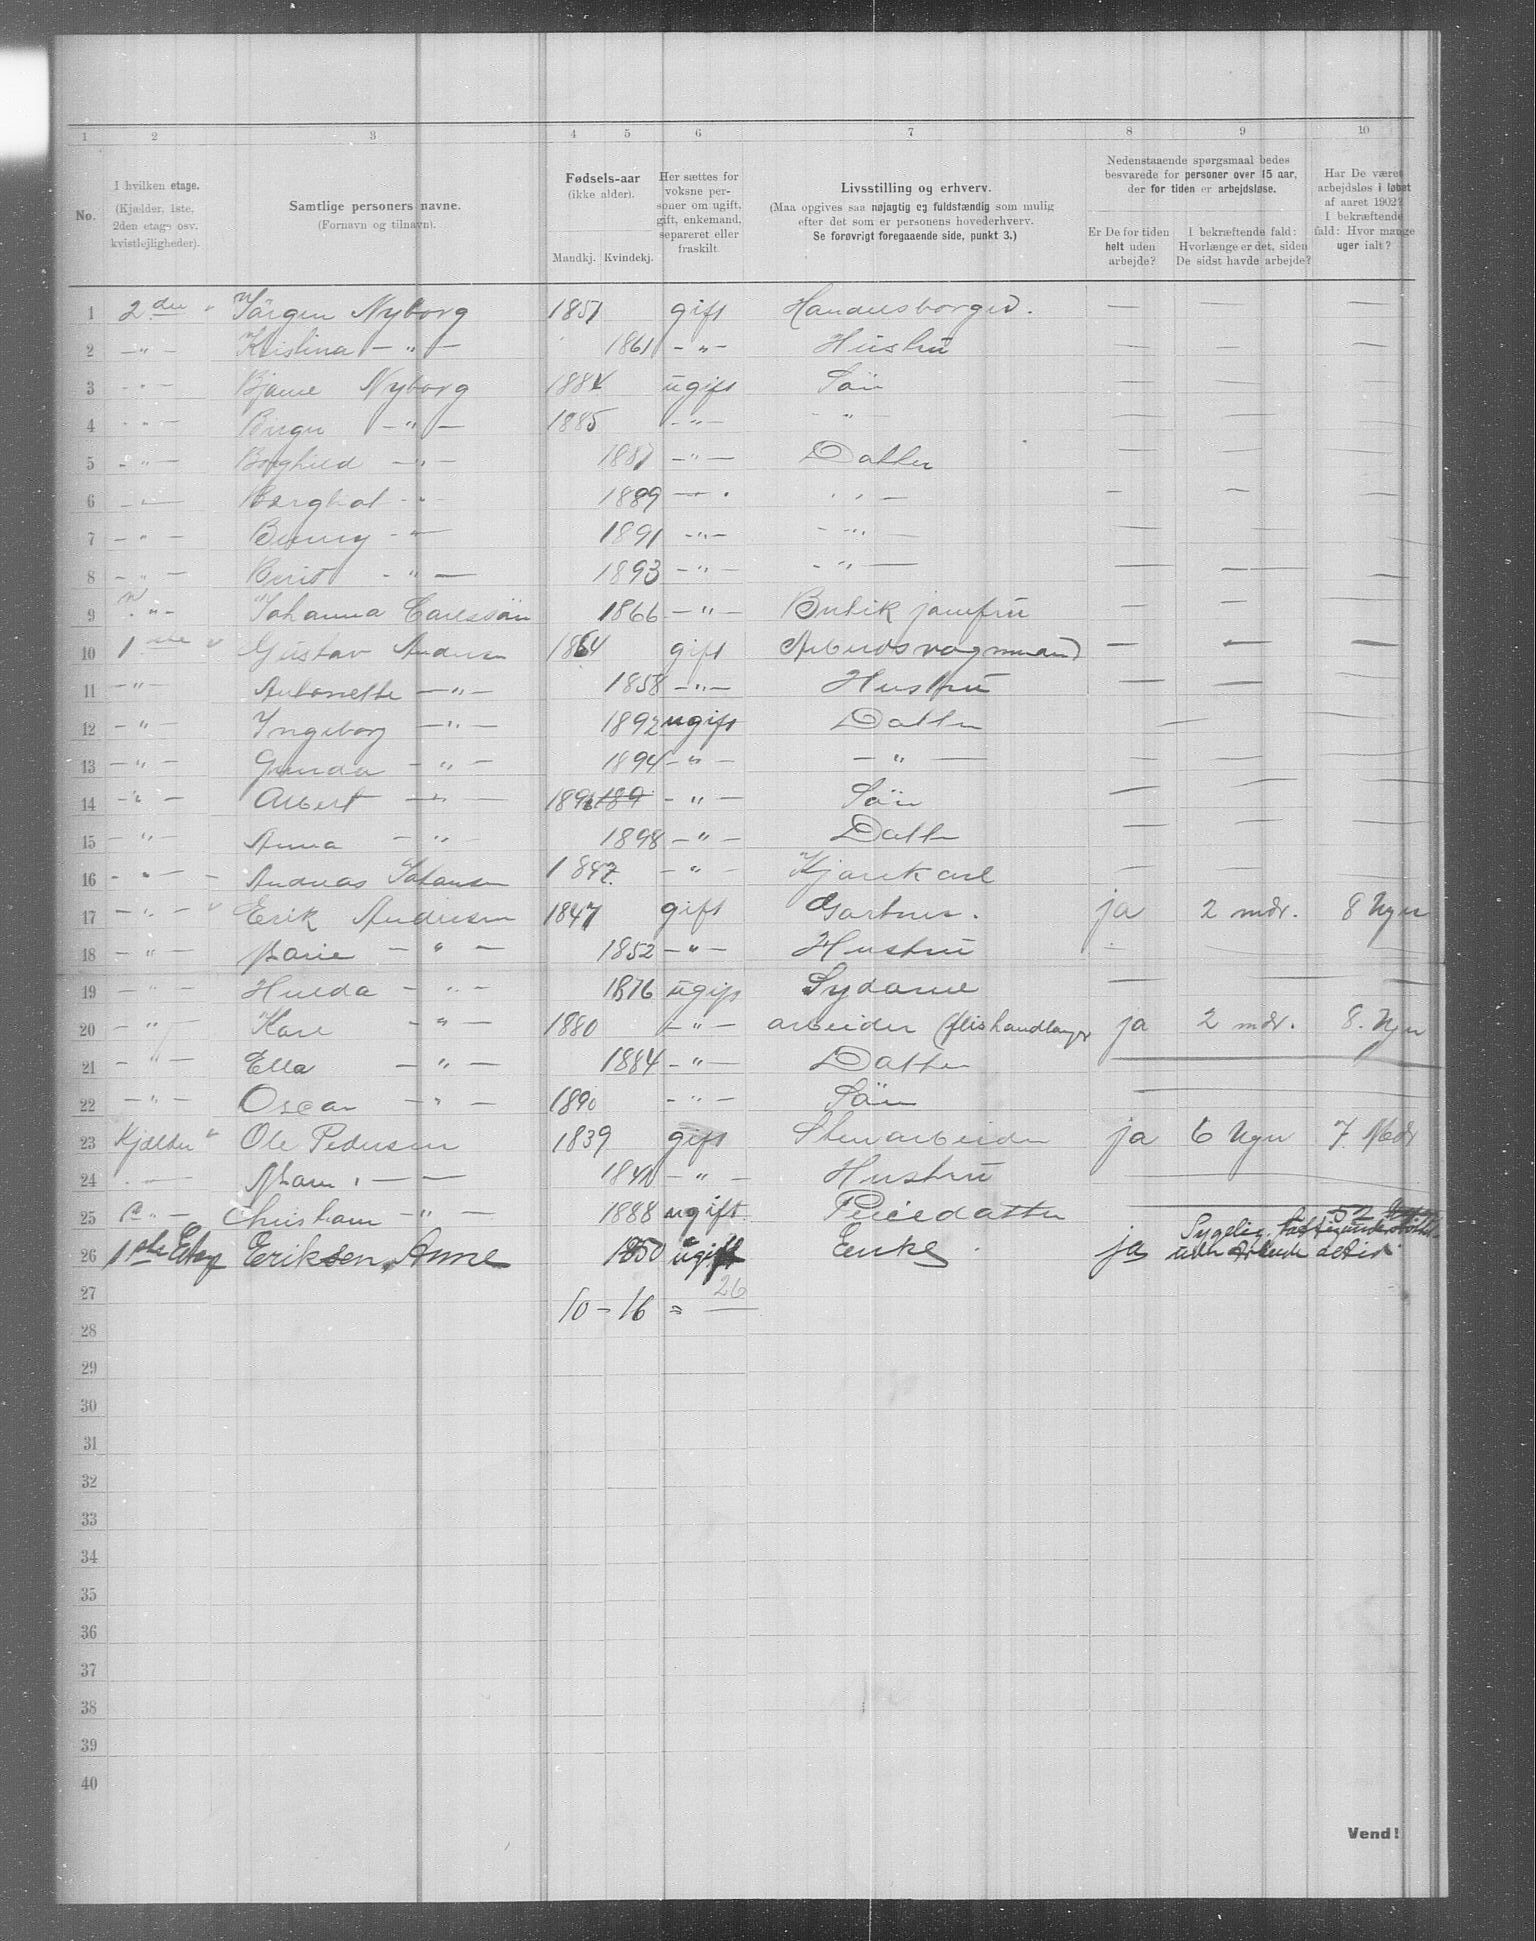 1 2 3 4 5 6 7 8 9 10
No.
I hvilken etage.
(Kjælder, 1ste,
2den etage osv.
kvistlejligheder).
Samtlige personers navne.
(Fornavn og tilnavn).
Fødsels-aar
(ikke alder).
Mandkj. Kvindekj.
Her sættes for
voksne per-
soner om ugift,
gift, enkemand,
separeret eller
fraskilt.
Livsstilling og erhverv.
(Maa opgives saa nøjagtig og fuldstændig som mulig
efter det som er personens hovederhverv.
Se forøvrigt foregaaende side, punkt 3.)
Nedenstaaende spørgsmaal bedes
besvarede for personer over 15 aar,
der for tiden er arbejdsløse.
Er De for tiden
helt uden
arbejde?
I bekræftende fald:
Hvorlænge er det, siden
De sidst havde arbejde?
Har De været
arbejdsløs i løbet
af aaret 1902?
I bekræftende
fald: Hvor mange
uger ialt?
1 2den Jörgen Nyborg 1851 gift Handelsborger. — — —
2 — " — Kristina — " — 1861 — " — Hustru — — —
3 — " — Bjarne Nyborg 1884 ugift Sön — — —
4 — " — Birger — " — 1885 — " — — " — — — —
5 — " — Borghild — " — 1887 — " — Datter — — —
6 — " — Bergliot — " — 1889 — " — — " — — — —
7 — " — Benny — " — 1891 — " — — " — — — —
8 — " — Berit — " — 1893 — " — — " — — — —
9 — " — Johanna Carlssön 1866 — " — Butik jomfru — — —
10 1ste Gustav Andersen 1864 gift Arbeidsvognmand — — —
11 — " — Antonette — " — 1858 — " — Hustru — — —
12 — " — Ingeborg — " — 1892 ugift Datter — —
13 — " — Gunda — " — 1894 — " — — " — — — —
14 — " — Albert — " — 1896 189 — " — Sön — — —
15 — " — Anna — " — 1898 — " — Datter — — —
16 — " — Andreas Johansen 1847. — " — Kjörekarl — — —
17 — " — Erik Andresen 1847 gift Gartner. ja 2 mdr. 8 Uger
18 — " — Marie — " — 1852 — " — Hustru
19 — " — Hulda — " — 1876 ugift Sydame — — —
20 — " — Karl — " — 1880 — " — arbeider (flishandlanger ja 2 mdr. 8. Uger
21 — " — Ella — " — 1884 — " — Datter —
22 — " — Oscar — " — 1890 — " — Sön —
23 Kjælder Ole Pedersen 1839 gift Stenarbeider ja 6 Uger 7. Mdr
24 — Maren — " — — " — Hustru —
25 — " — — " — 1888 ugift. Pleiedatter —
26 1ste Etag Eriksen, Anne 1850 ugift Enke ja Sygelig. 52
uden detid
27 10 – 16 = 26
28
29
30
31
32
33
34
35
36
37
38
39
40
Vend!